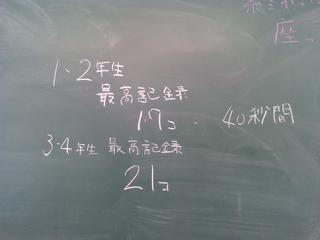 1・2年生
最高記録
17コ
40秒間
3・4年生 最高記録
21コ
座